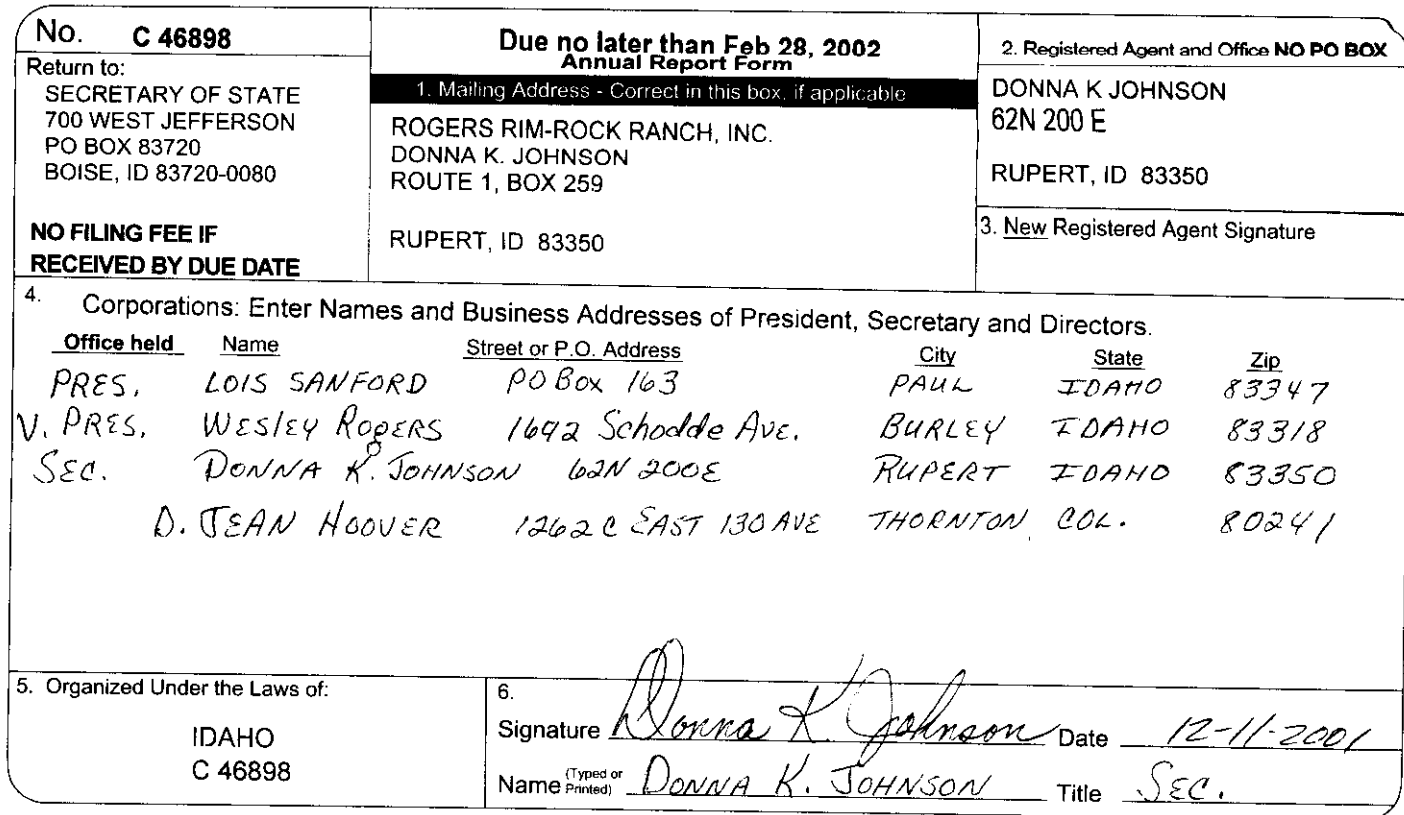 No. C 46898
Return to:
SECRETARY OF STATE
700 WEST JEFFERSON
PO BOX 83720
BOISE, ID 83720-0080
NO FILING FEE IF
RECEIVED BY DUE DATE
Due no later than Feb 28, 2002
Annual Report Form
1. Mailing Address - Correct in this box, if applicable
ROGERS RIM-ROCK RANCH, INC.
DONNA K. JOHNSON
ROUTE 1, BOX 259
RUPERT, ID 83350
2. Registered Agent and Office NO PO BOX
DONNA K JOHNSON
62N 200 E
RUPERT, ID 83350
3. New Registered Agent Signature
4. Corporations: Enter Names and Business Addresses of President, Secretary and Directors.
Office held Name Street or P.O. Address City State Zip
PRES. LOIS SANFORD PO Box 163 PAUL IDAHO 83347
V. PRES. WESLEY ROGERS 1692 Schodde Ave. BURLEY IDAHO 83318
SEC. DONNA K. JOHNSON 62N 200E RUPERT IDAHO 83350
D. JEAN HOOVER 1262 C EAST 130 AVE THORNTON COL. 80241
5. Organized Under the Laws of:
IDAHO
C 46898
6.
Signature Donna K. Johnson Date 12-11-2001
Name (Typed or Printed) DONNA K. JOHNSON Title SEC.